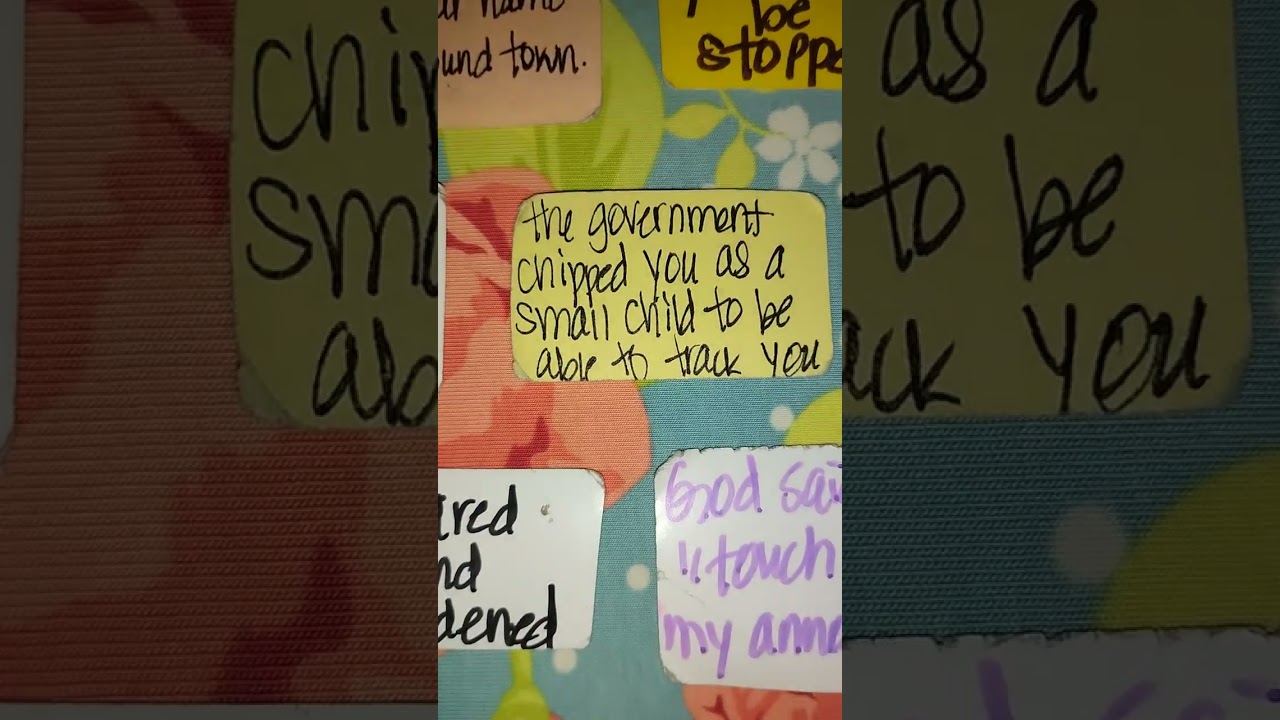 name
und town.
be
stoppe
the government
chipped you as a
small child to be
able to track you
ired
nd
dened
God sai
"touch
my anno